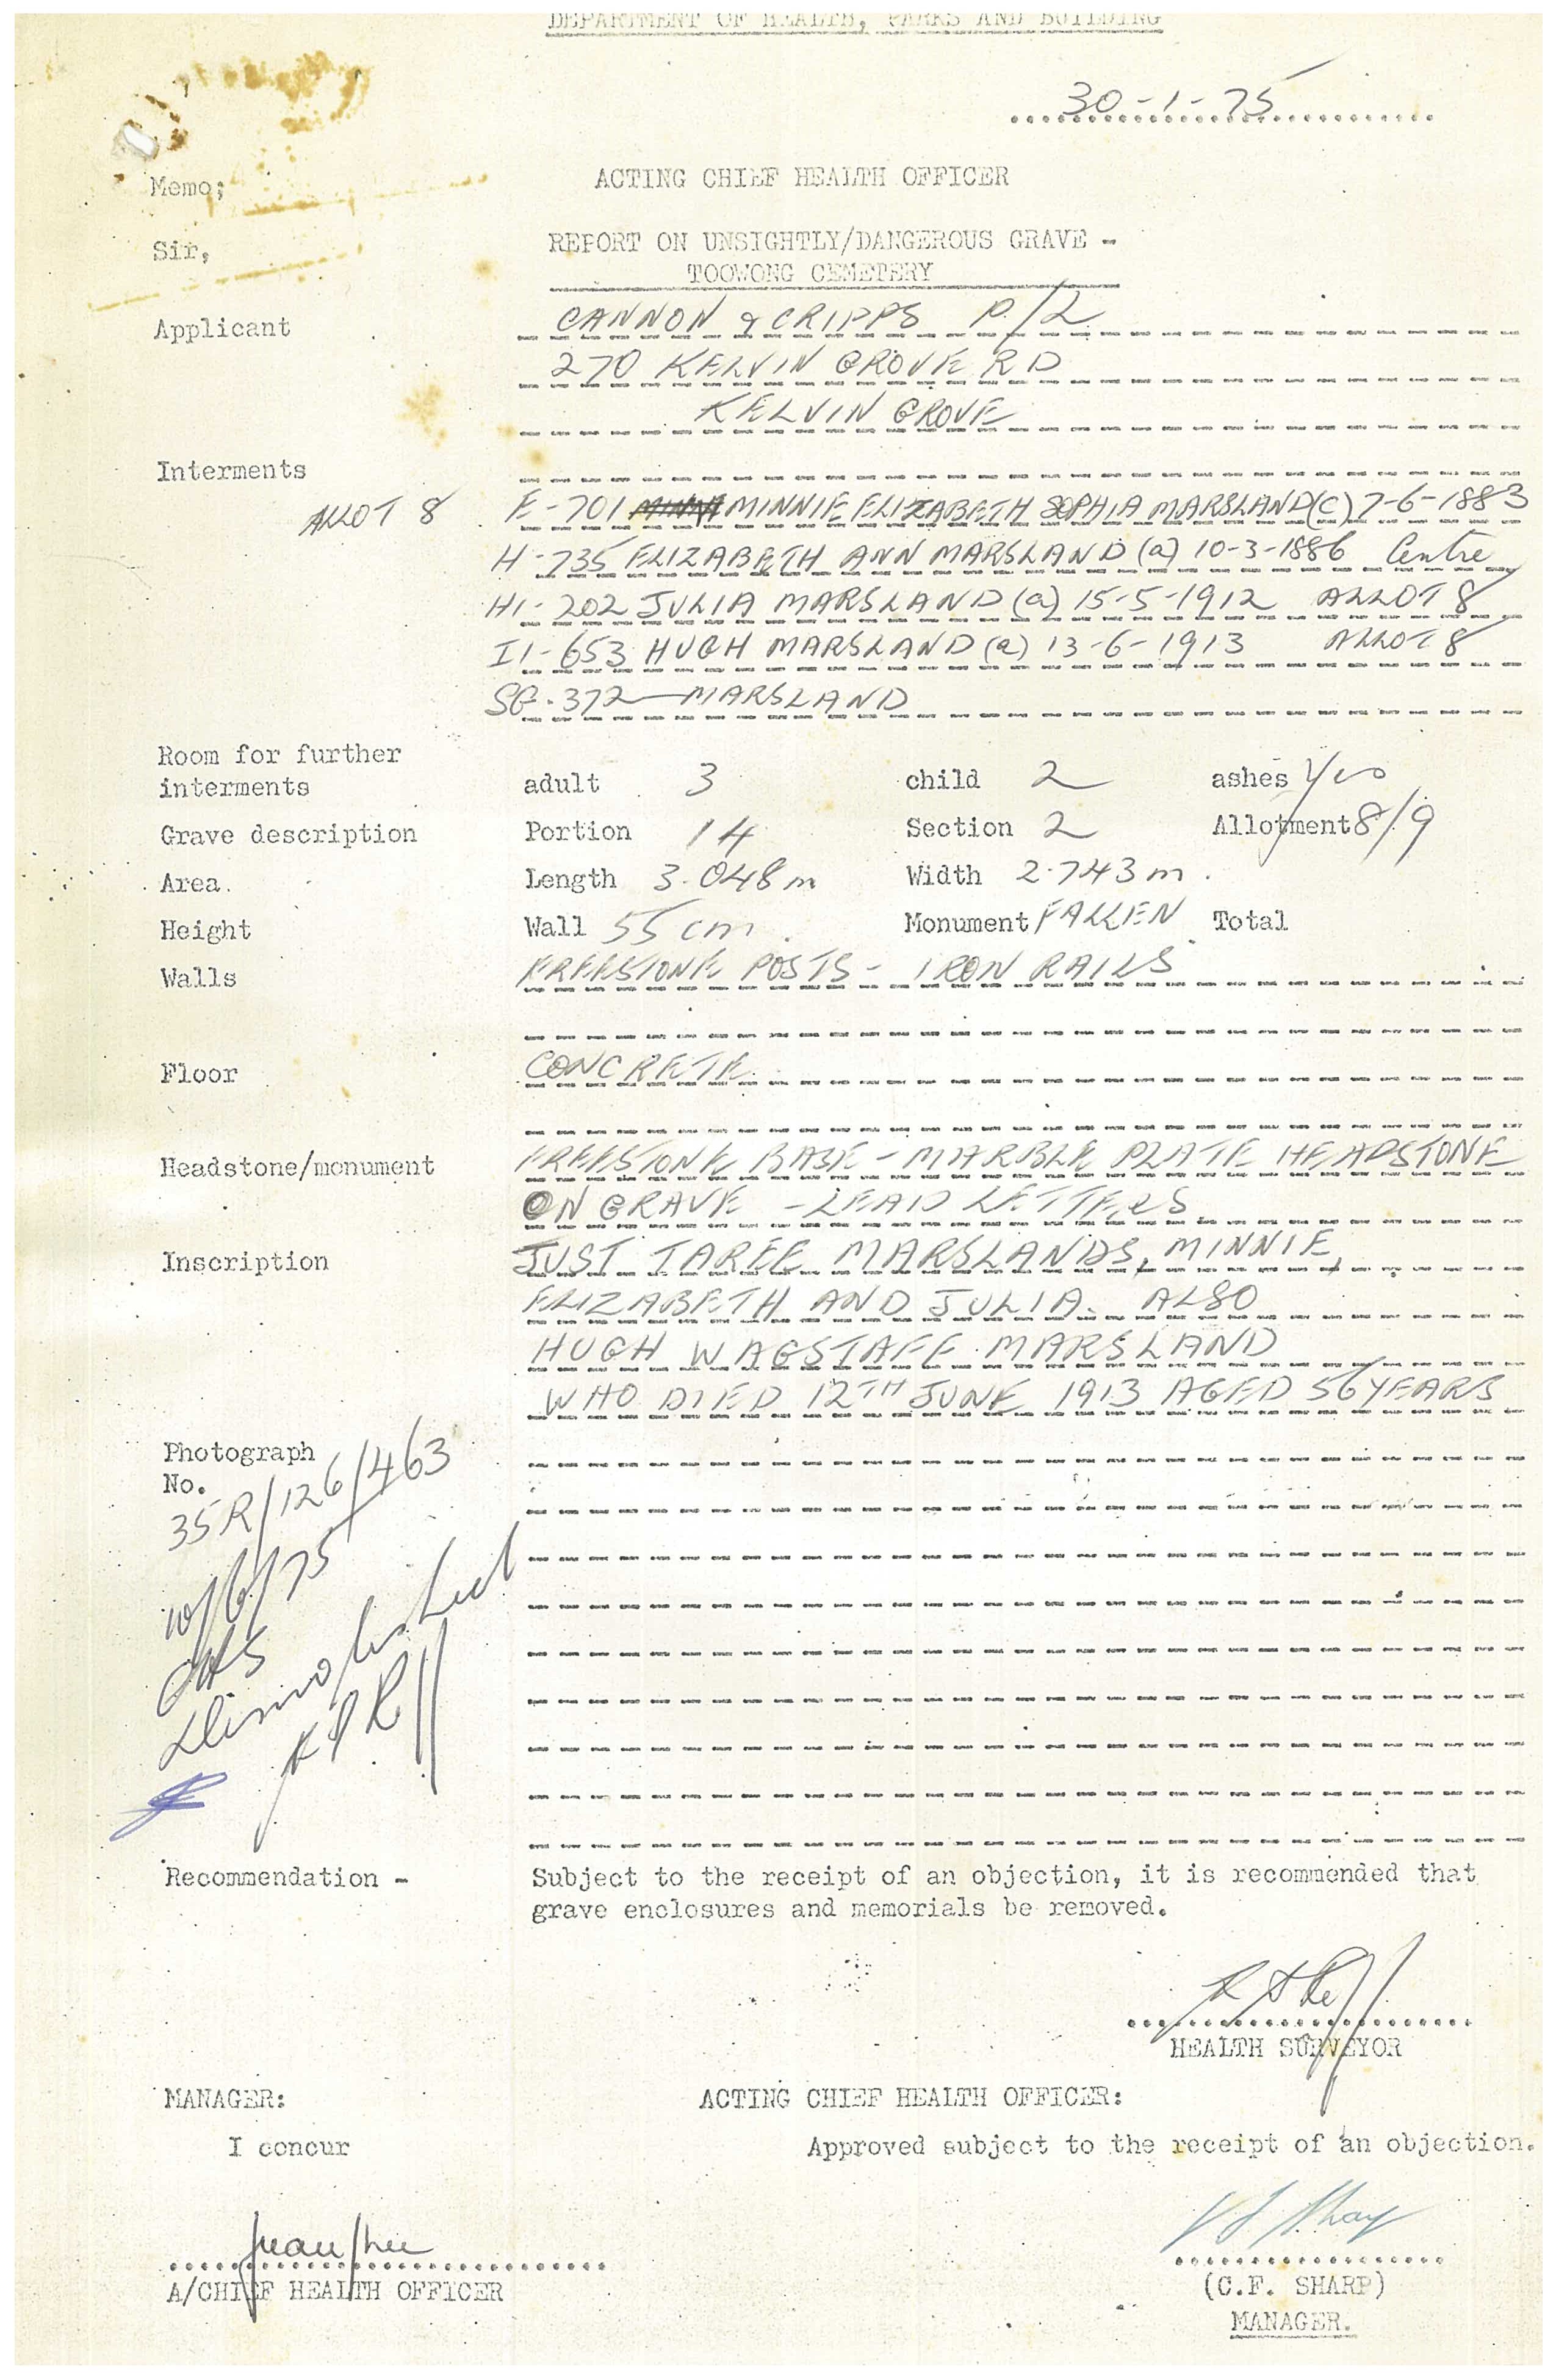 DEPARTMENT OF HEALTH, PARKS AND BUILDING
30-1-75
Memo; ACTING CHIEF HEALTH OFFICER
Sir, REPORT ON UNSIGHTLY/DANGEROUS GRAVE -
TOOWONG CEMETERY
Applicant CANNON & CRIPPS P/L
270 KELVIN GROVE RD
KELVIN GROVE
Interments
ALLOT 8 E-701 MINNIE ELIZABETH SOPHIA MARSLAND (C) 7-6-1883
H-735 ELIZABETH ANN MARSLAND (a) 10-3-1886 Centre
H1-202 JULIA MARSLAND (a) 15-5-1912 ALLOT 8
I1-653 HUGH MARSLAND (a) 13-6-1913 ALLOT 8
SG-372 - MARSLAND
Room for further
interments adult 3 child 2 ashes Yes
Grave description Portion 14 Section 2 Allotment 8/9
Area. Length 3.048m Width 2.743m.
Height Wall 55 cm. Monument FALLEN Total
Walls FREESTONE POSTS - IRON RAILS
Floor CONCRETE
Headstone/monument FREESTONE BASE - MARBLE PLATE HEADSTONE
ON GRAVE - LEAD LETTERS
Inscription JUST TAREE MARSLANDS, MINNIE,
ELIZABETH AND JULIA. ALSO
HUGH WAGSTAFF MARSLAND
WHO DIED 12TH JUNE 1913 AGED 56 YEARS
Photograph
No.
35R/126/463
10/6/75
Demolished
Recommendation - Subject to the receipt of an objection, it is recommended that
grave enclosures and memorials be removed.
HEALTH SURVEYOR
MANAGER: ACTING CHIEF HEALTH OFFICER:
I concur Approved subject to the receipt of an objection.
A/CHIEF HEALTH OFFICER (C.F. SHARP)
MANAGER.